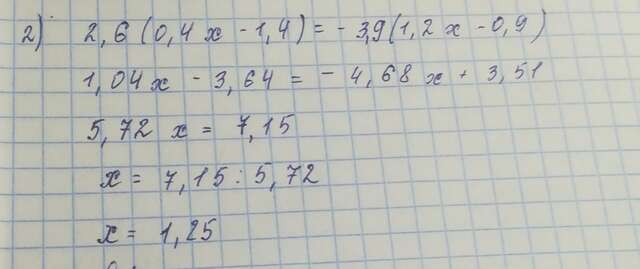 2) 2,6(0,4x - 1,4) = - 3,9(1,2x - 0,9)
1,04x - 3,64 = - 4,68x + 3,51
5,72x = 7,15
x = 7,15 : 5,72
x = 1,25